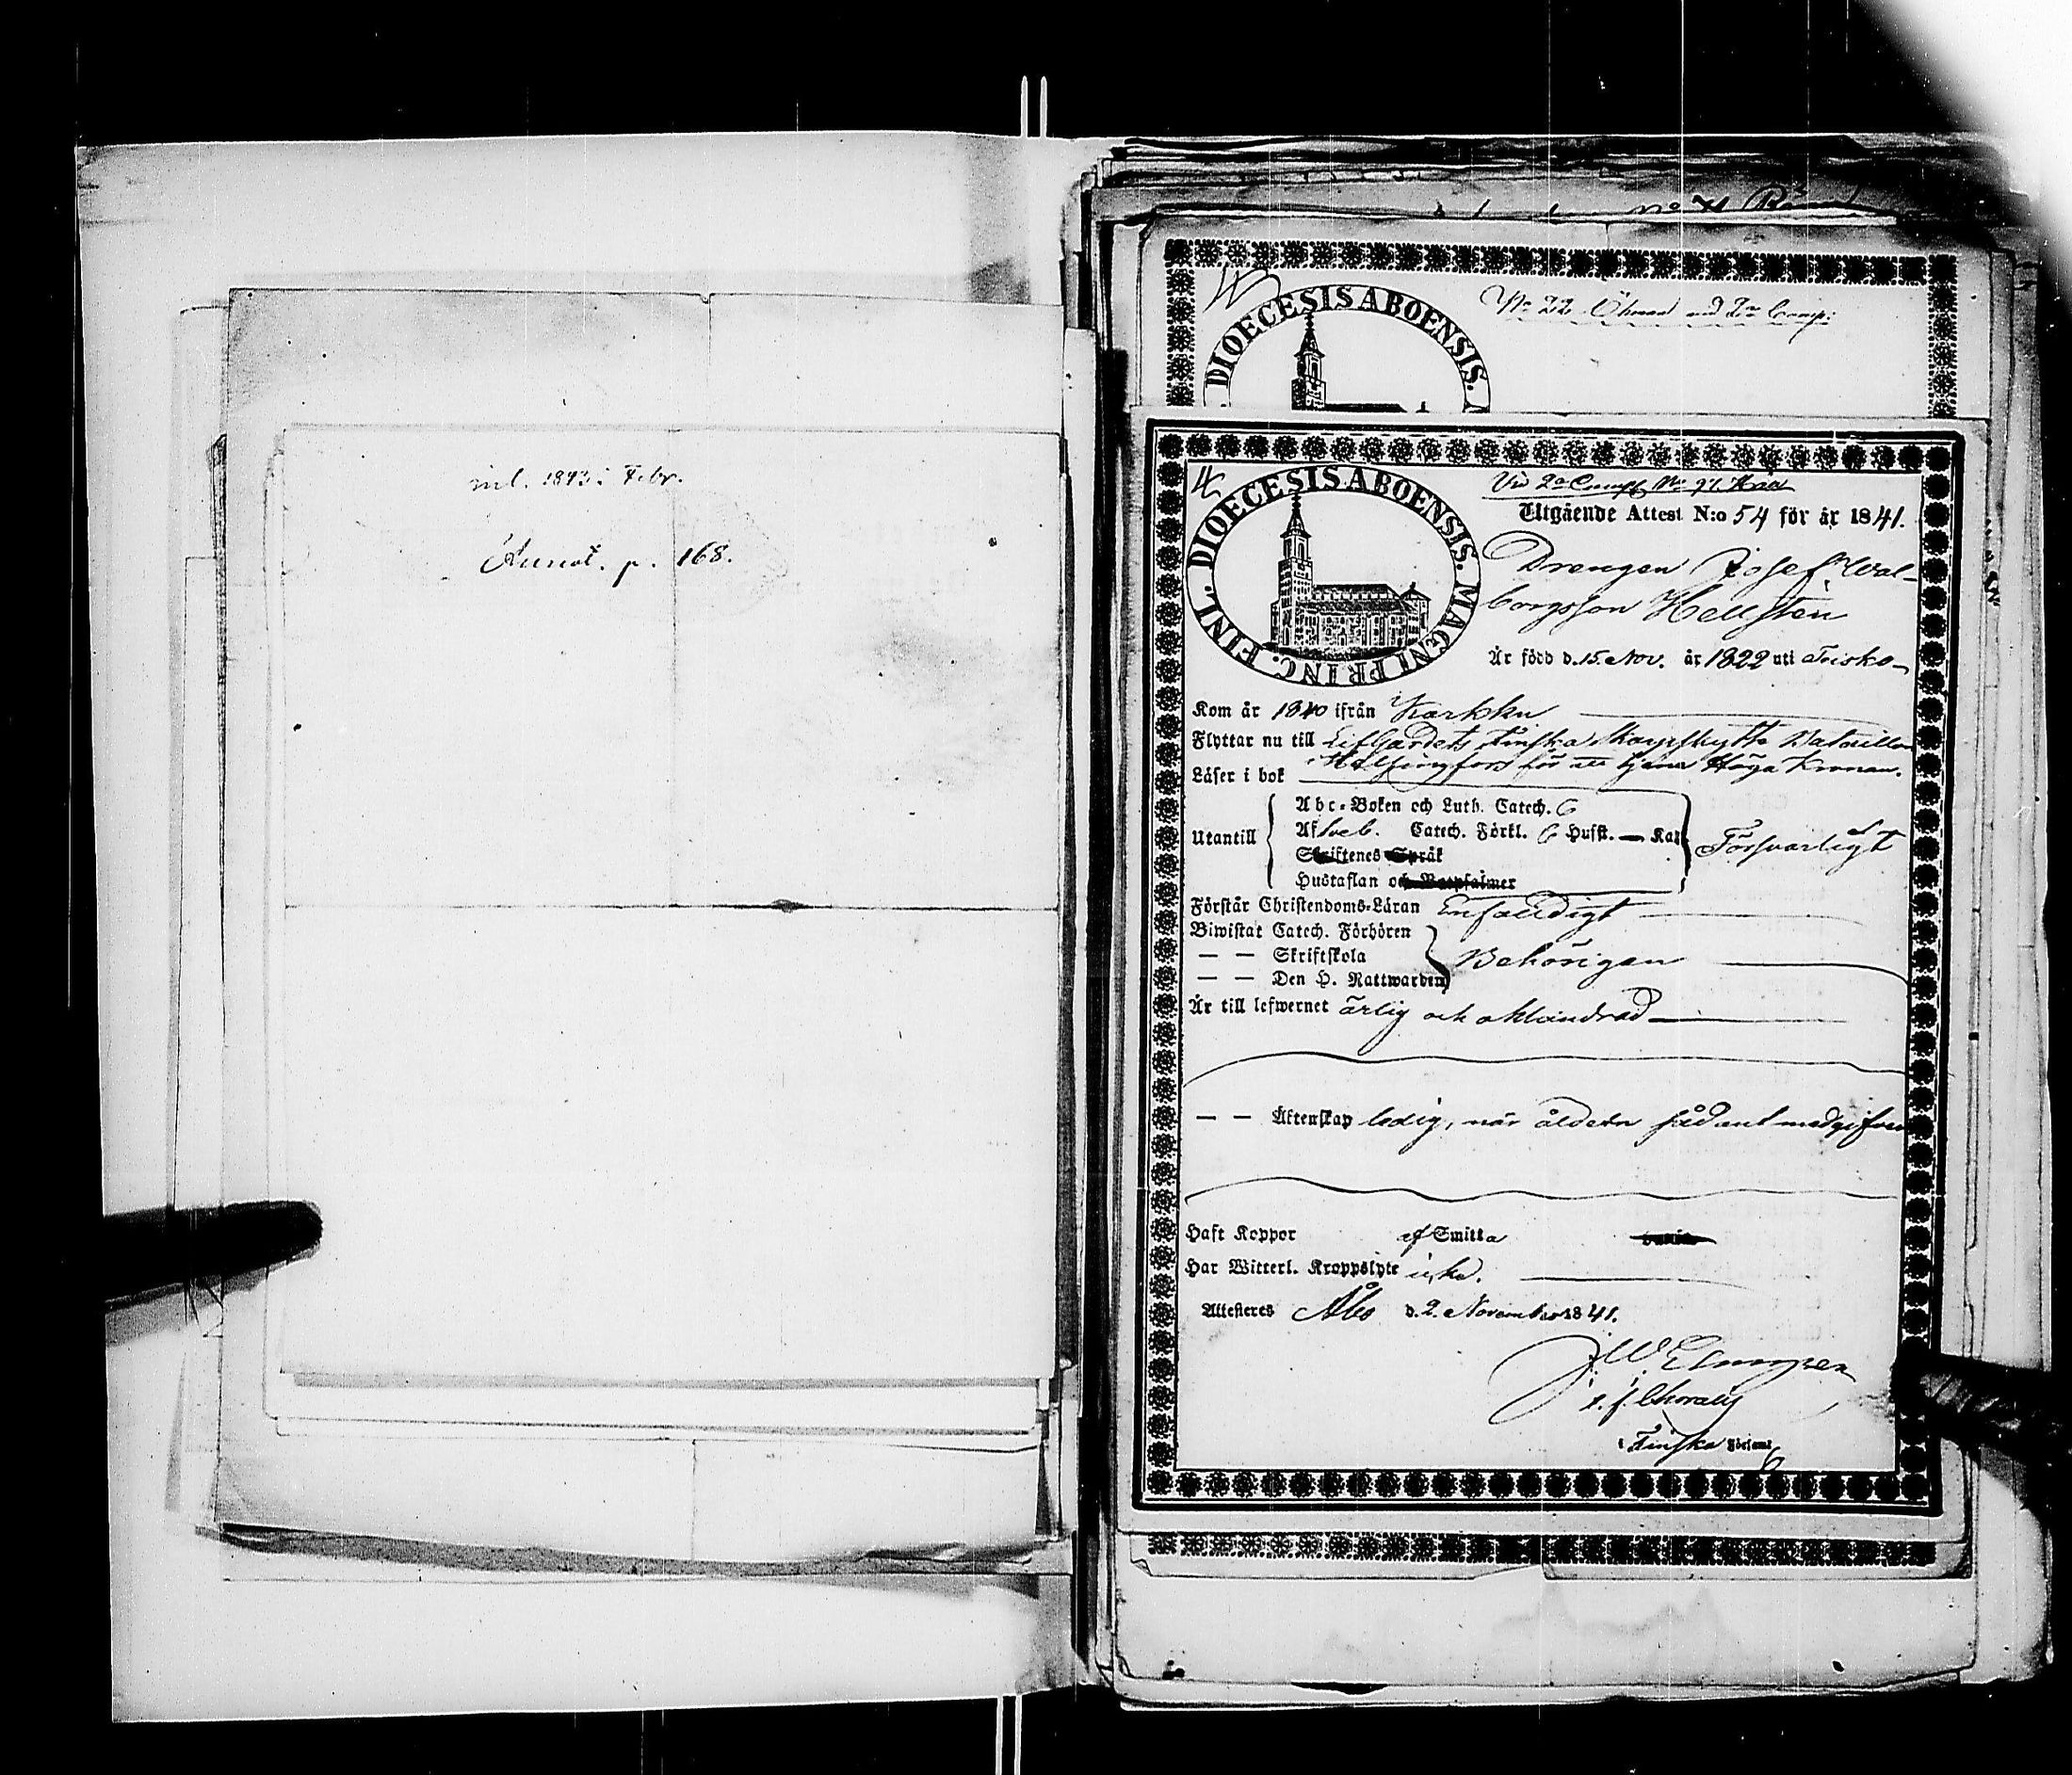 inl. 1843 i Febr.
Annot. p. 168.
DIOECESIS ABOENSIS.
No 22 Öhman vid 2:a Comp:
DIOECESIS ABOENSIS. MAGNI PRINC. FINL.
Vid 2a Comp. No 97.
Utgående Attest N:o 54 för år 1841.
Drengen Josef Wal-
borgsson Hellstén
Är född d. 15. Nov. år 1822 uti
Kom år 1840 ifrån Karkku
Flyttar nu till LifGardets Finska Skarpskytte Bataillon
i Helsingfors för att tjena Höga Kronan.
Läser i bok
Utantill
Abc-Boken och Luth. Catech. 6
Af Catech. Förkl. 6 Husst. —
Skriftenes Språk
Hustaflan och
Försvarligt
Förstår Christendoms-Läran Enfaldigt
Biwistat Catech. Förhören
— — Skriftskola Behörigen
— — Den H. Nattwarden
Är till lefwernet ärlig och oklandrad
— — Äktenskap ledig, når åldern sådant medgifver
Haft Koppor af Smitta
Har Witterl. Kroppslyte icke.
Attesteras Åbo d. 2. November 1841.
i Finska Förson